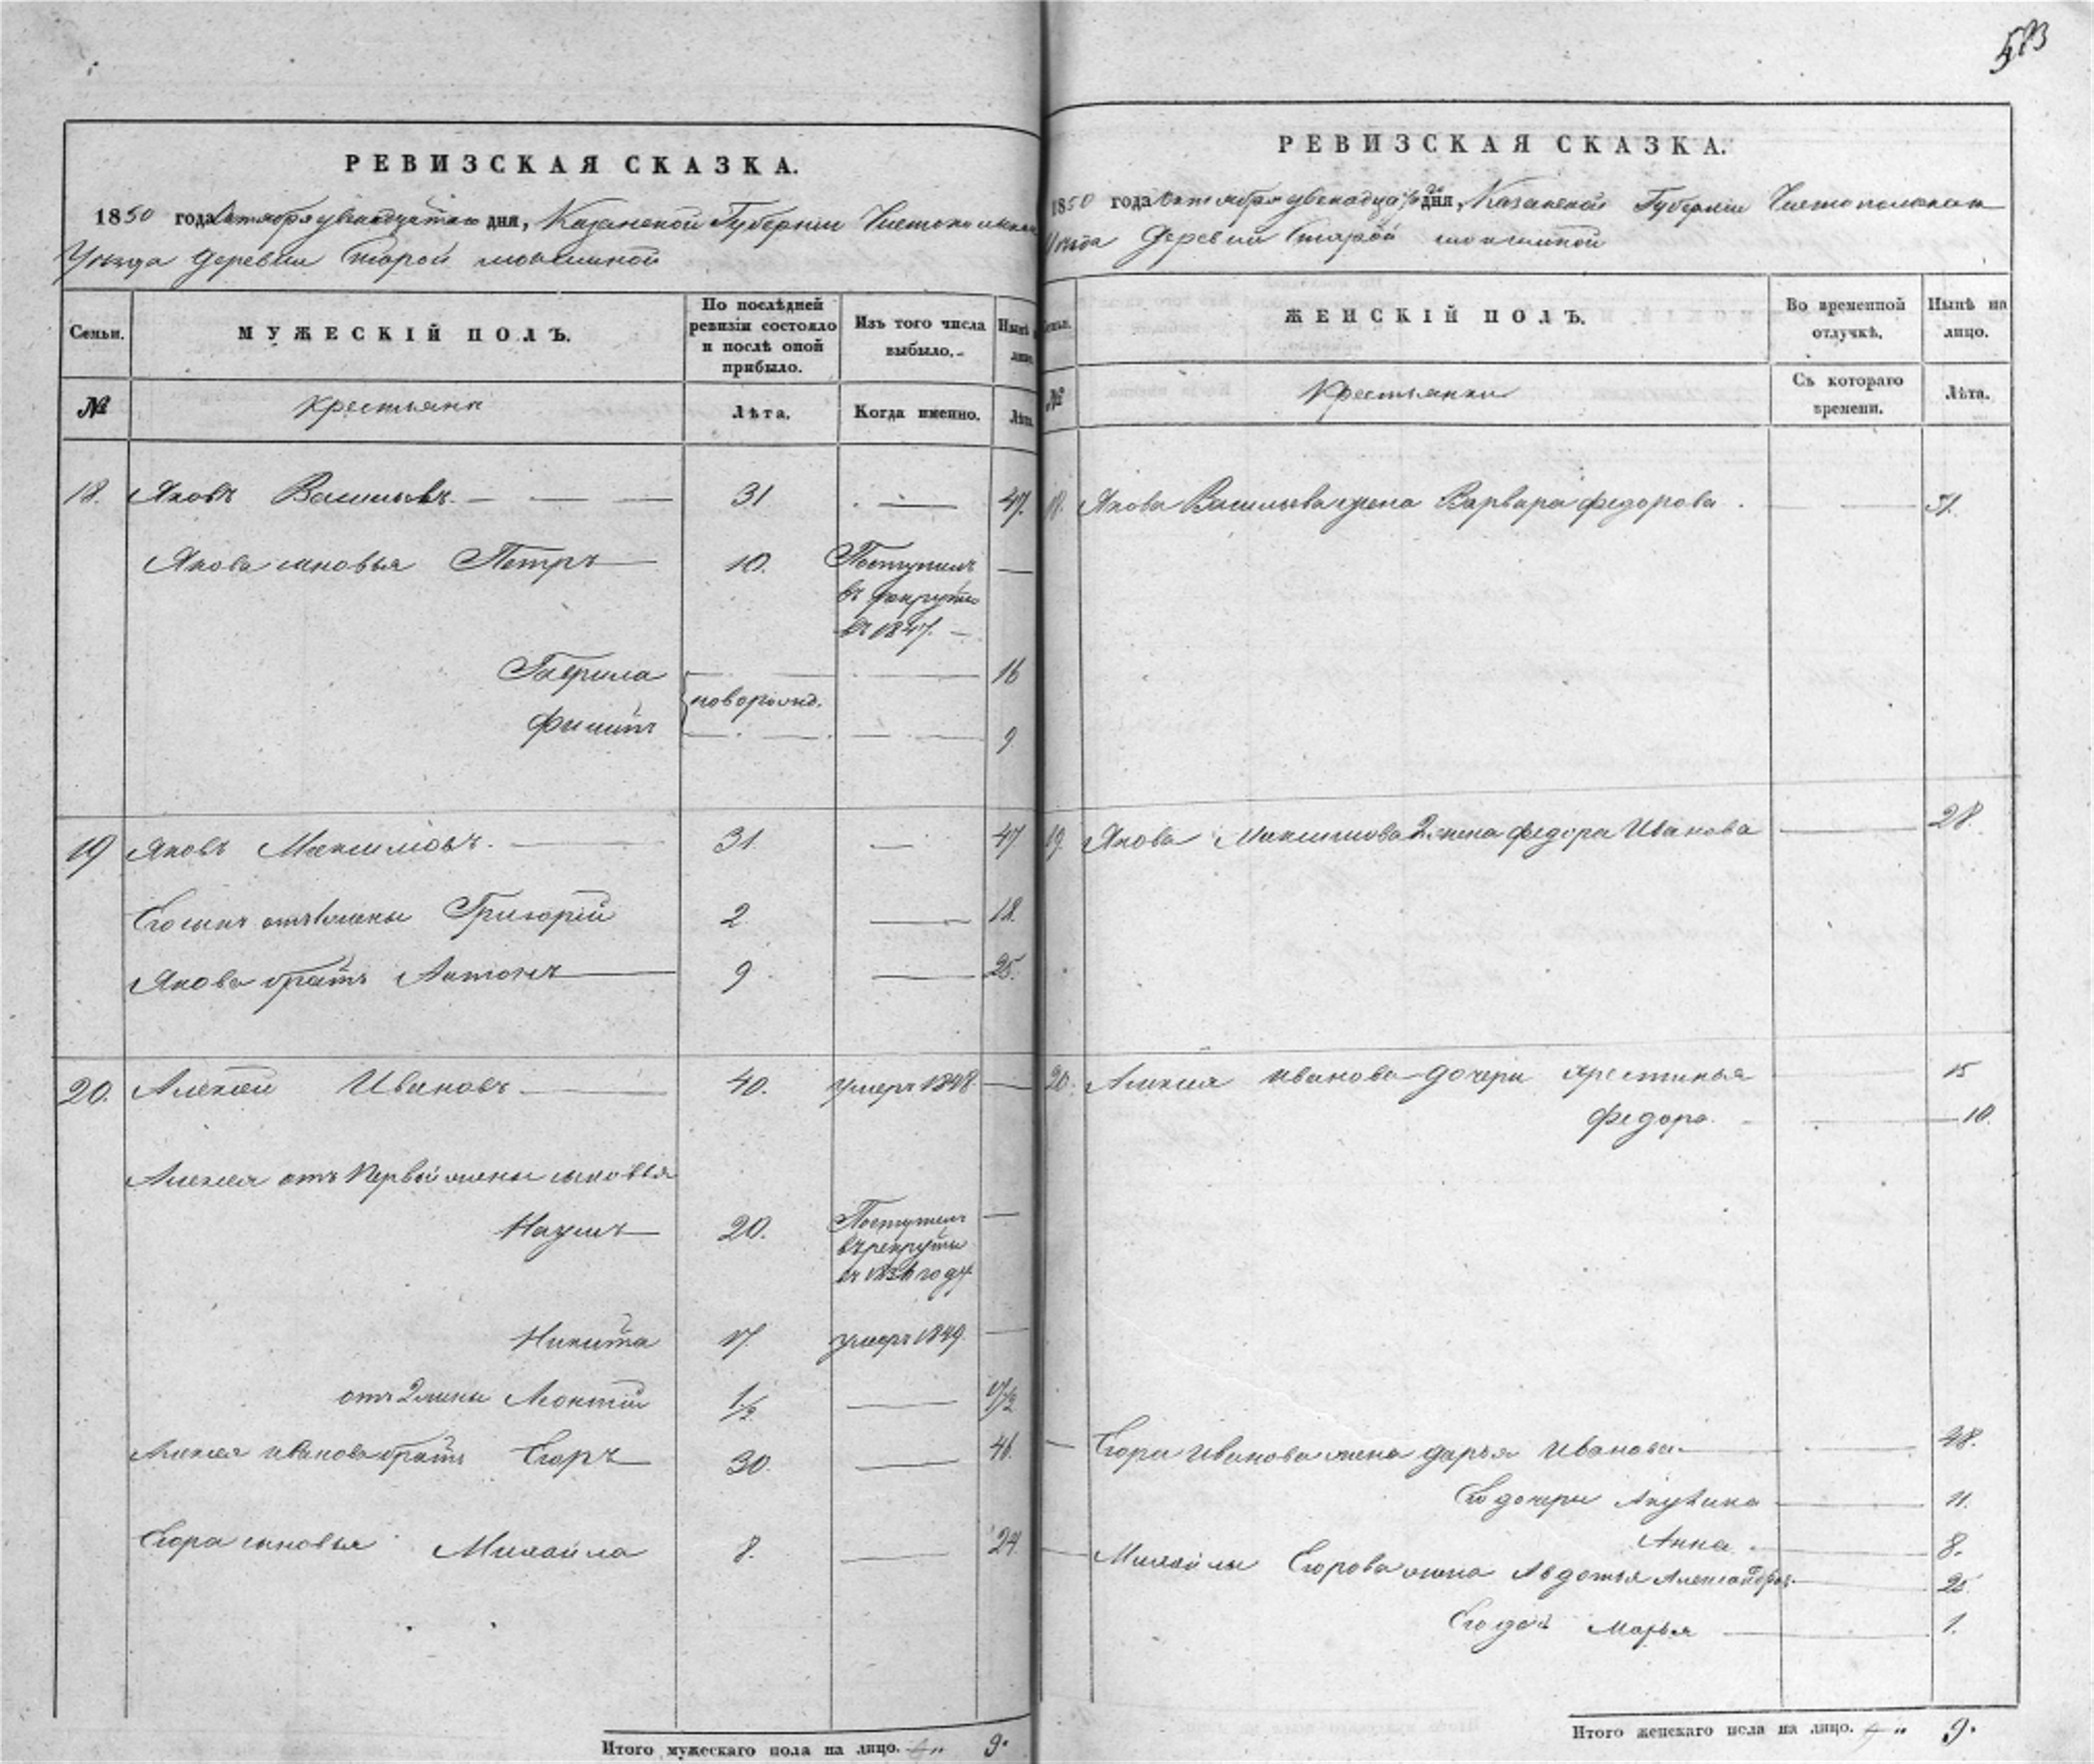 583
РЕВИЗСКАЯ СКАЗКА.
1850 года Октября двенадцатаго дня, Казанской Губернии Чистопольскаго
Уезда Деревни Старой
Семьи.
МУЖЕСКІЙ ПОЛЪ.
По послѣдней ревизіи состояло и послѣ оной прибыло.
Изъ того числа выбыло.
Нынѣ
№
Крестьяне
Лѣта.
Когда именно.
Лѣта
18. Яковъ Васильевъ. 31 47.
Якова сыновья Петръ 10. Поступилъ
въ рекруты
въ 1847.
Гаврила 16
новорожд.
Филипъ 9
19 Яковъ Максимовъ. 31 47
Его сынъ отъ 1 жены Григорій 2 18.
Якова братъ Антонъ 9 25.
20. Алексей Ивановъ 40. умеръ 1848
Алексея отъ первой жены сыновья
Наумъ 20. Поступилъ
въ рекруты
въ 1836 году
Никита 17. умеръ 1849
отъ 2 жены Леонтій 1/2 17 1/2
Алексея Иванова братъ Егоръ 30. 46.
Егора сыновья Михайла 8. 24
Итого мужескаго пола на лицо. 9.
РЕВИЗСКАЯ СКАЗКА.
1850 года Октября двенадцатаго дня, Казанской Губернии Чистопольскаго
Уезда Деревни Старой
Семьи.
ЖЕНСКІЙ ПОЛЪ.
Во временной отлучкѣ.
Нынѣ на лицо.
№
Крестьянки
Съ котораго времени.
Лѣта.
18. Якова Васильева жена Варвара Федорова 51.
19. Якова Максимова 2 жена Федора Иванова 28.
20. Алексея Иванова дочери Хрестинья 15
Федора. 10.
Егора Иванова жена Дарья Иванова 48.
Его дочери Акулина 11.
Анна 8.
Михайлы Егорова жена Авдотья Александрова 25.
Его дочь Марья 1.
Итого женскаго пола на лицо. 9.